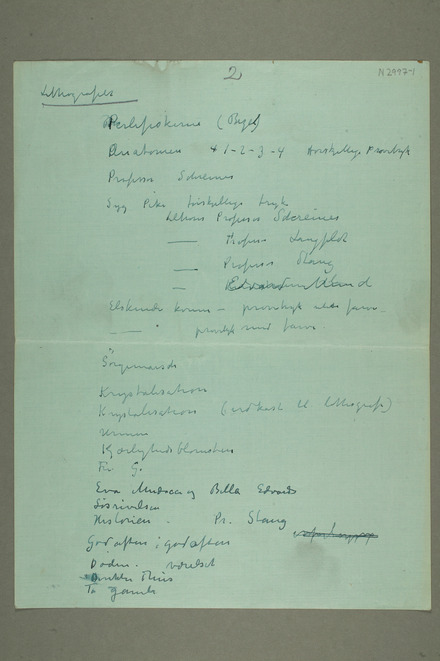 2
N 2997-1
Lithografier
Perlefiskerne (Byget)
Anatomen + 1-2-3-4 forskjellige Prøvetryk
Professor Schreiner
Syg Pike forskjellige tryk
Professor Schreiner
— Professor Langfeldt
— Professor Stang
—
Elskende kvinne — prøvetryk uten farve
— " prøvetryk med farve
Sørgemarsch
Krystalisation
Krystalisation (utkast til lithografi)
Urnen
Kjærlighedsblomsten
Fru G.
Eva Mudocci og Bella Edwards
Historien. Pr. Stang
God aften; god aften
Døden. værelset
To gamle